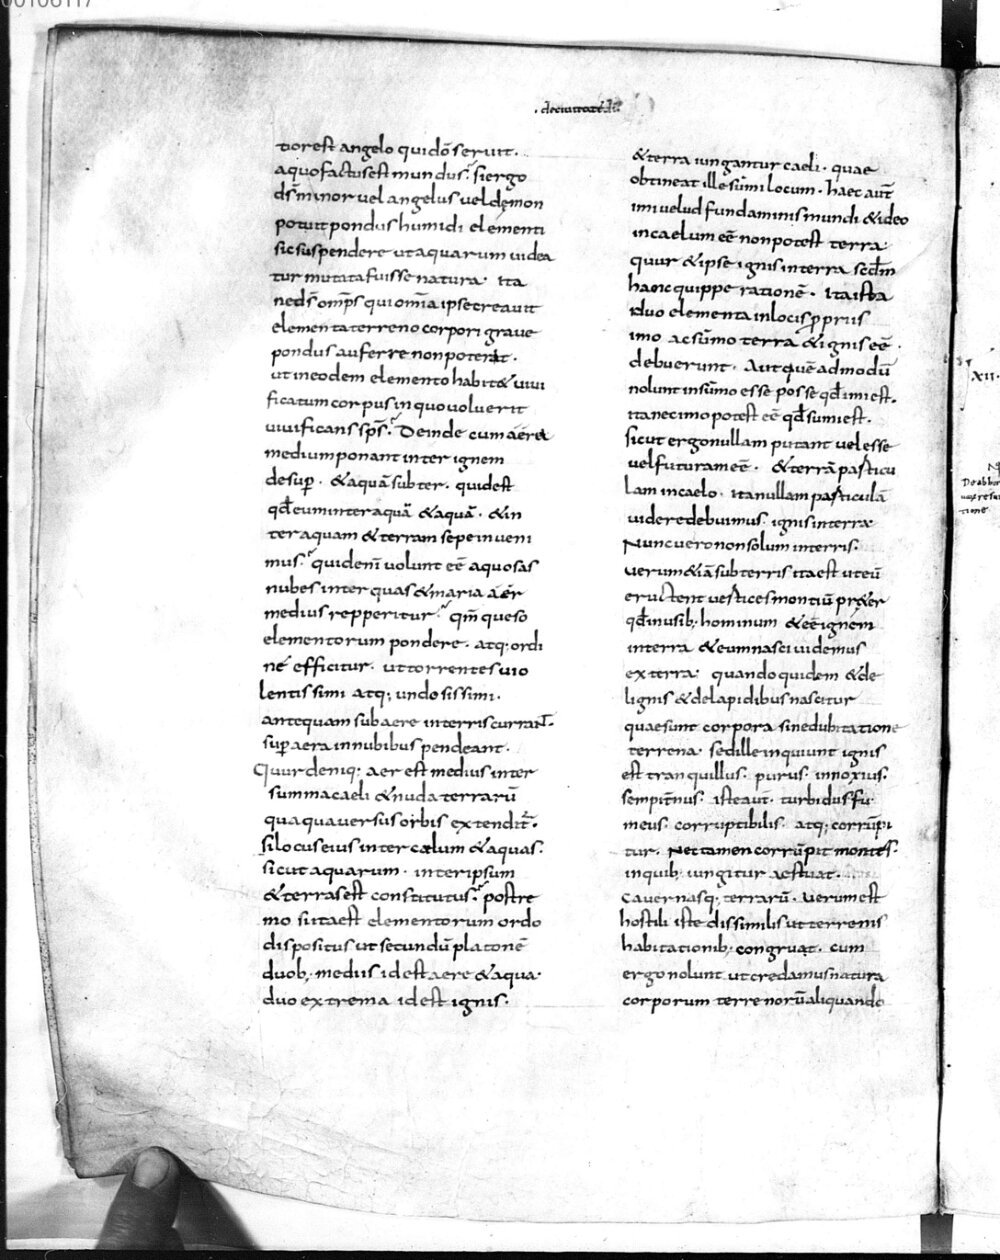 00106117
· de ciuitate dī
tor est angelo qui dō seruit.
a quo factus est mundus. si ergo
ds̄ minor uel angelus uel demon
potuit pondus humidi elementi
sic suspendere ut aquarum uidea
tur mutata fuisse natura. Ita
ne ds̄ omp̄s qui om̄ia ipse creauit
elementa terreno corpori graue
pondus auferre non poterit.
ut in eodem elemento habit& uiui
ficatum corpus in quo uoluerit
uiuificans sps̄. Deinde cum aera
medium ponant inter ignem
desup. & aquā subter. quid est
qđ eum inter aquā & aquā. & in
ter aquam & terram sepe inueni
mus. quid enī uolunt eē aquosas
nubes inter quas & maria aer
medius repperitur. qm̄ queso
elementorum pondere. atq; ordi
ne efficitur. ut torrentes uio
lentissimi atq; undosissimi.
antequam sub aere in terris currant.
sup aera in nubibus pendeant.
Quur deniq; aer est medius inter
summa caeli & nuda terrarū
quaqua uersus orbis extendit̄.
si locus eius inter caelum & aquas.
sicut aquarum. inter ipsum
& terras est constitutus. postre
mo si ita est elementorum ordo
dispositus ut secundū platonē
duob; mediis id est aere & aqua.
duo extrema id est ignis.
& terra iungantur caeli. quae
obtineat ille sūmi locum. haec aut̄
imi uelud fundaminis mundi & ideo
in caelum eē non potest terra
quur & ipse ignis in terra secdm̄
hanc quippe rationē. Ita ista
duo elementa in locis ꝓpriis
imo ac sūmo terra & ignis eē.
debuerunt. Aut quēadmodū
nolunt in sūmo esse posse qđ imi est.
ita nec imo potest eē qđ sumi est.
sicut ergo nullam putant uel esse
uel futuram eē. & terrā particu
lam in caelo. ita nullam particulā
uidere debuimus. ignis in terra
Nunc uero non solum in terris.
uerum &iā sub terris ita est ut eū
eructent uertices montiū pr&er
qđ in usib; hominum & eē ignem
in terra & eum nasci uidemus
ex terra. quando quidem & de
lignis & de lapidibus nascitur
quae sunt corpora sine dubitatione
terrena. sed ille inquiunt ignis
est tranquillus. purus. innoxius.
sempit̄nus. iste aut̄. turbidus fu
meus. corruptibilis. atq; corrūpi
tur. Nec tamen corrūpit montes.
in quib; iungitur aestuat.
cauernasq; terrarū. Uerum est
hostili iste dissimilis ut terrenis
habitationib; congruat. cum
ergo nolunt ut credamus natura
corporum terrenorū aliquando
XII.
tione